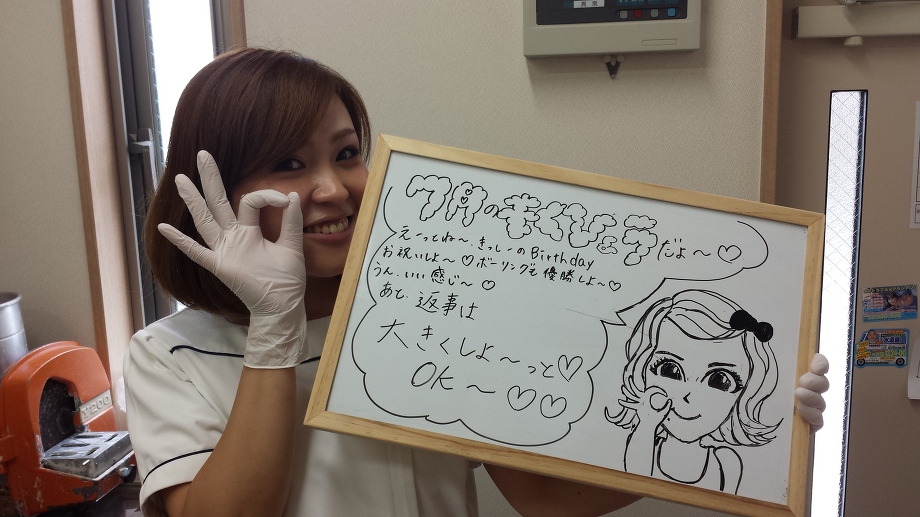 7月のもくひょうだよ～♡
えーっとね～、きっしーのBirthday
お祝いしよ～♡ボーリングも優勝しよ～♡
うん、いい感じ～♡
あと、返事は
大きくしよ～っと♡
OK～♡♡
200